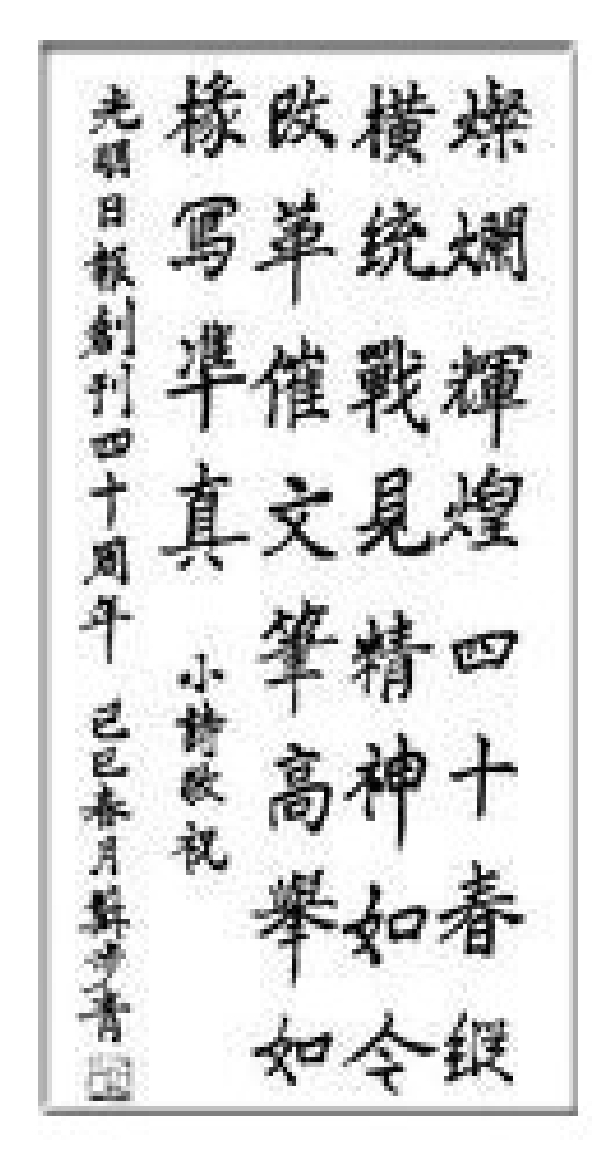 燦爛輝煌四十春縱
橫统戰見精神如今
改革催文筆高舉如
椽写準真 小詩致祝
光明日報創刊四十周年 己巳春月蘇步青